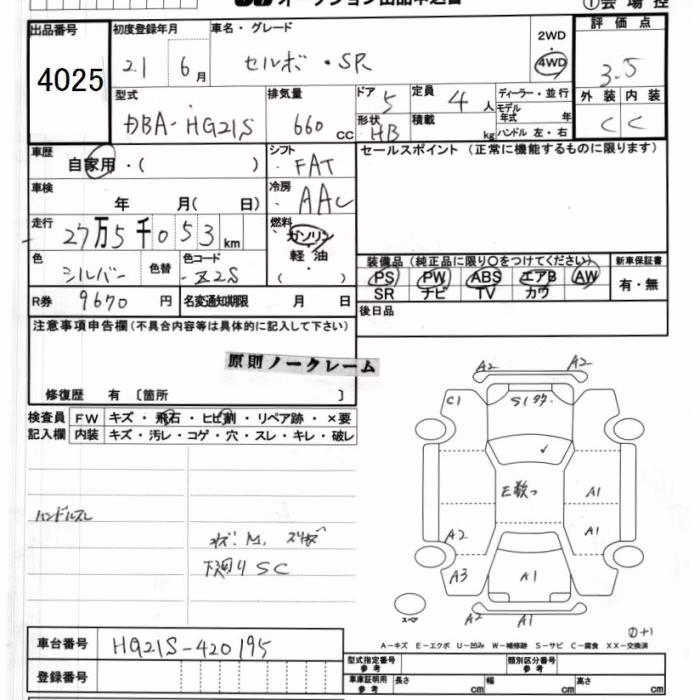 オークション出品申込書 ①会場控
出品番号 初度登録年月 車名・グレード 2WD 評価点
4025 21 6月 セルボ・SR 4WD 3.5
型式 排気量 ドア 5 定員 4人 ディーラー・並行 外装 内装
DBA-HG21S 660 CC 形状 HB 積載 kg モデル年式 年 ハンドル 左・右 C C
車歴 自家用・( ) シフト FAT セールスポイント (正常に機能するものに限ります)
車検 年 月( 日) 冷房 AAC
走行 27万5千053km 燃料 ガソリン・軽油・( )
色 シルバー 色替 色コード Z2S
装備品 (純正品に限り〇をつけてください) 新車保証書
PS PW ABS エアB AW 有・無
SR ナビ TV カワ
R券 9670円 名変通知期限 月 日 後日品
注意事項申告欄 (不具合内容等は具体的に記入して下さい)
原則ノークレーム
修復歴 有 〔箇所 〕
検査員 FW キズ・飛石・ヒビ割・リペア跡・×要
記入欄 内装 キズ・汚レ・コゲ・穴・スレ・キレ・破レ
A2 A2
C1 S1
E数つ A1
ハンドルスレ
A2 A1
下廻りSC
A3 A1
スペア A2 A1
A-キズ E-エクボ U-凹み W-補修跡 S-サビ C-腐食 XX-交換済
車台番号 HG21S-420195
登録番号
型式指定番号 参考 類別区分番号 参考
車庫証明用 参考 長さ cm 幅 cm 高さ cm